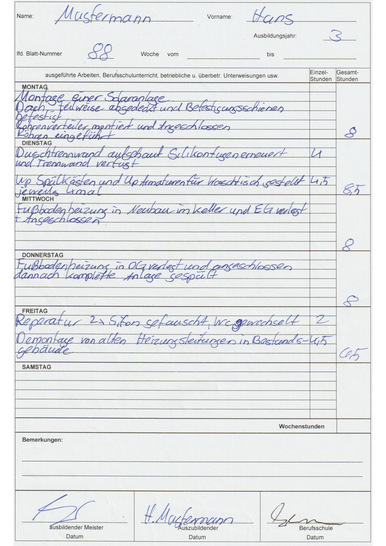 Name: Mustermann Vorname: Hans
Ausbildungsjahr: 3
lfd. Blatt-Nummer 88 Woche vom bis
ausgeführte Arbeiten, Berufsschulunterricht, betriebliche u. überbetr. Unterweisungen usw. Einzel-Stunden Gesamt-Stunden
MONTAG
Montage einer Solaranlage
Dach teilweise abgedeckt und Befestigungsschienen
befestigt
Röhrenverteiler montiert und Angeschlossen
Röhren eingeführt 8
DIENSTAG
Duschtrennwand aufgebaut Silikonfugen erneuert 4
und Trennwand verfugt
Up Spülkästen und Up Armaturen für Waschtisch gestellt 4,5
jeweils 4 mal 8,5
MITTWOCH
Fußbodenheizung in Neubau im Keller und EG verlegt
+ Angeschlossen
8
DONNERSTAG
Fußbodenheizung in OG verlegt und angeschlossen
dannach komplette Anlage gespült
8
FREITAG
Reperatur 2x Sifon getauscht, Wc gewechselt 2
Demontage von alten Heizungsleitungen in Bestands- 4,5
gebäude 6,5
SAMSTAG
Wochenstunden
Bemerkungen:
H. Mustermann
ausbildender Meister Auszubildender Berufsschule
Datum Datum Datum